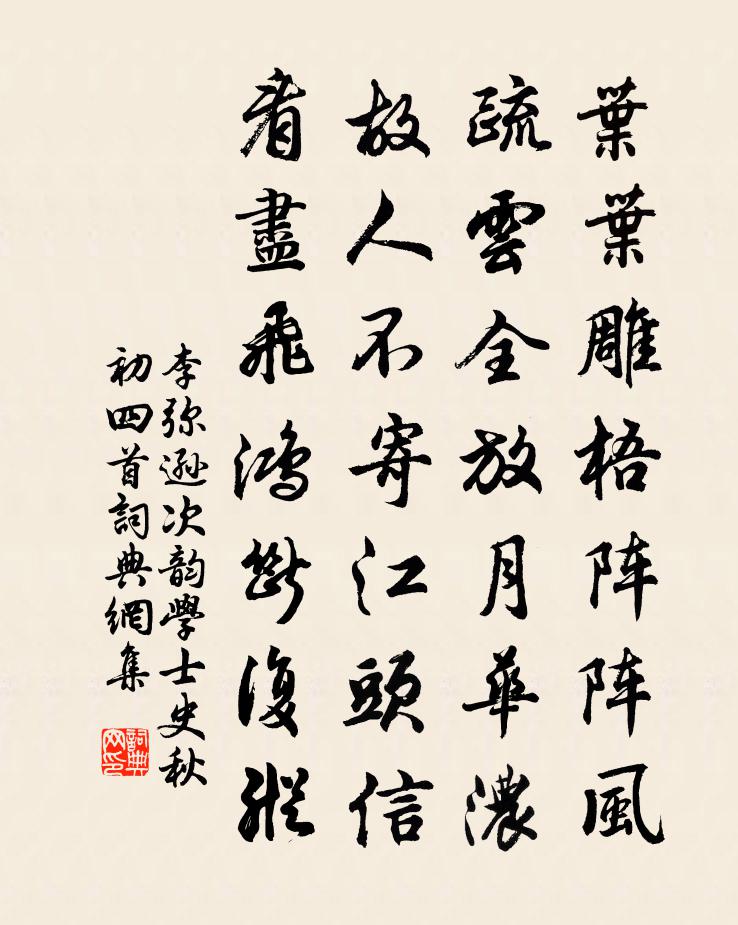 葉葉雕梧阵阵風
疏雲全放月華濃
故人不寄江頭信
看盡飛鴻斷復縱
李弥逊次韵學士史秋
初四首詞典網集
詞典网印